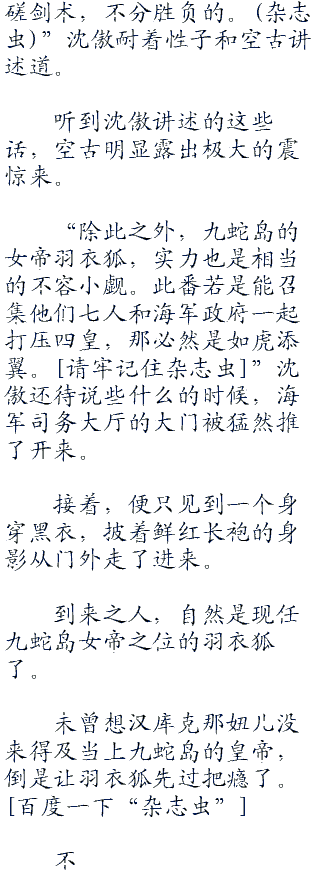 磋剑术，不分胜负的。(杂志
虫)”沈傲耐着性子和空古讲
述道。
听到沈傲讲述的这些
话，空古明显露出极大的震
惊来。
“除此之外，九蛇岛的
女帝羽衣狐，实力也是相当
的不容小觑。此番若是能召
集他们七人和海军政府一起
打压四皇，那必然是如虎添
翼。[请牢记住杂志虫]”沈
傲还待说些什么的时候，海
军司务大厅的大门被猛然推
了开来。
接着，便只见到一个身
穿黑衣，披着鲜红长袍的身
影从门外走了进来。
到来之人，自然是现任
九蛇岛女帝之位的羽衣狐
了。
未曾想汉库克那妞儿没
来得及当上九蛇岛的皇帝，
倒是让羽衣狐先过把瘾了。
[百度一下“杂志虫”]
不